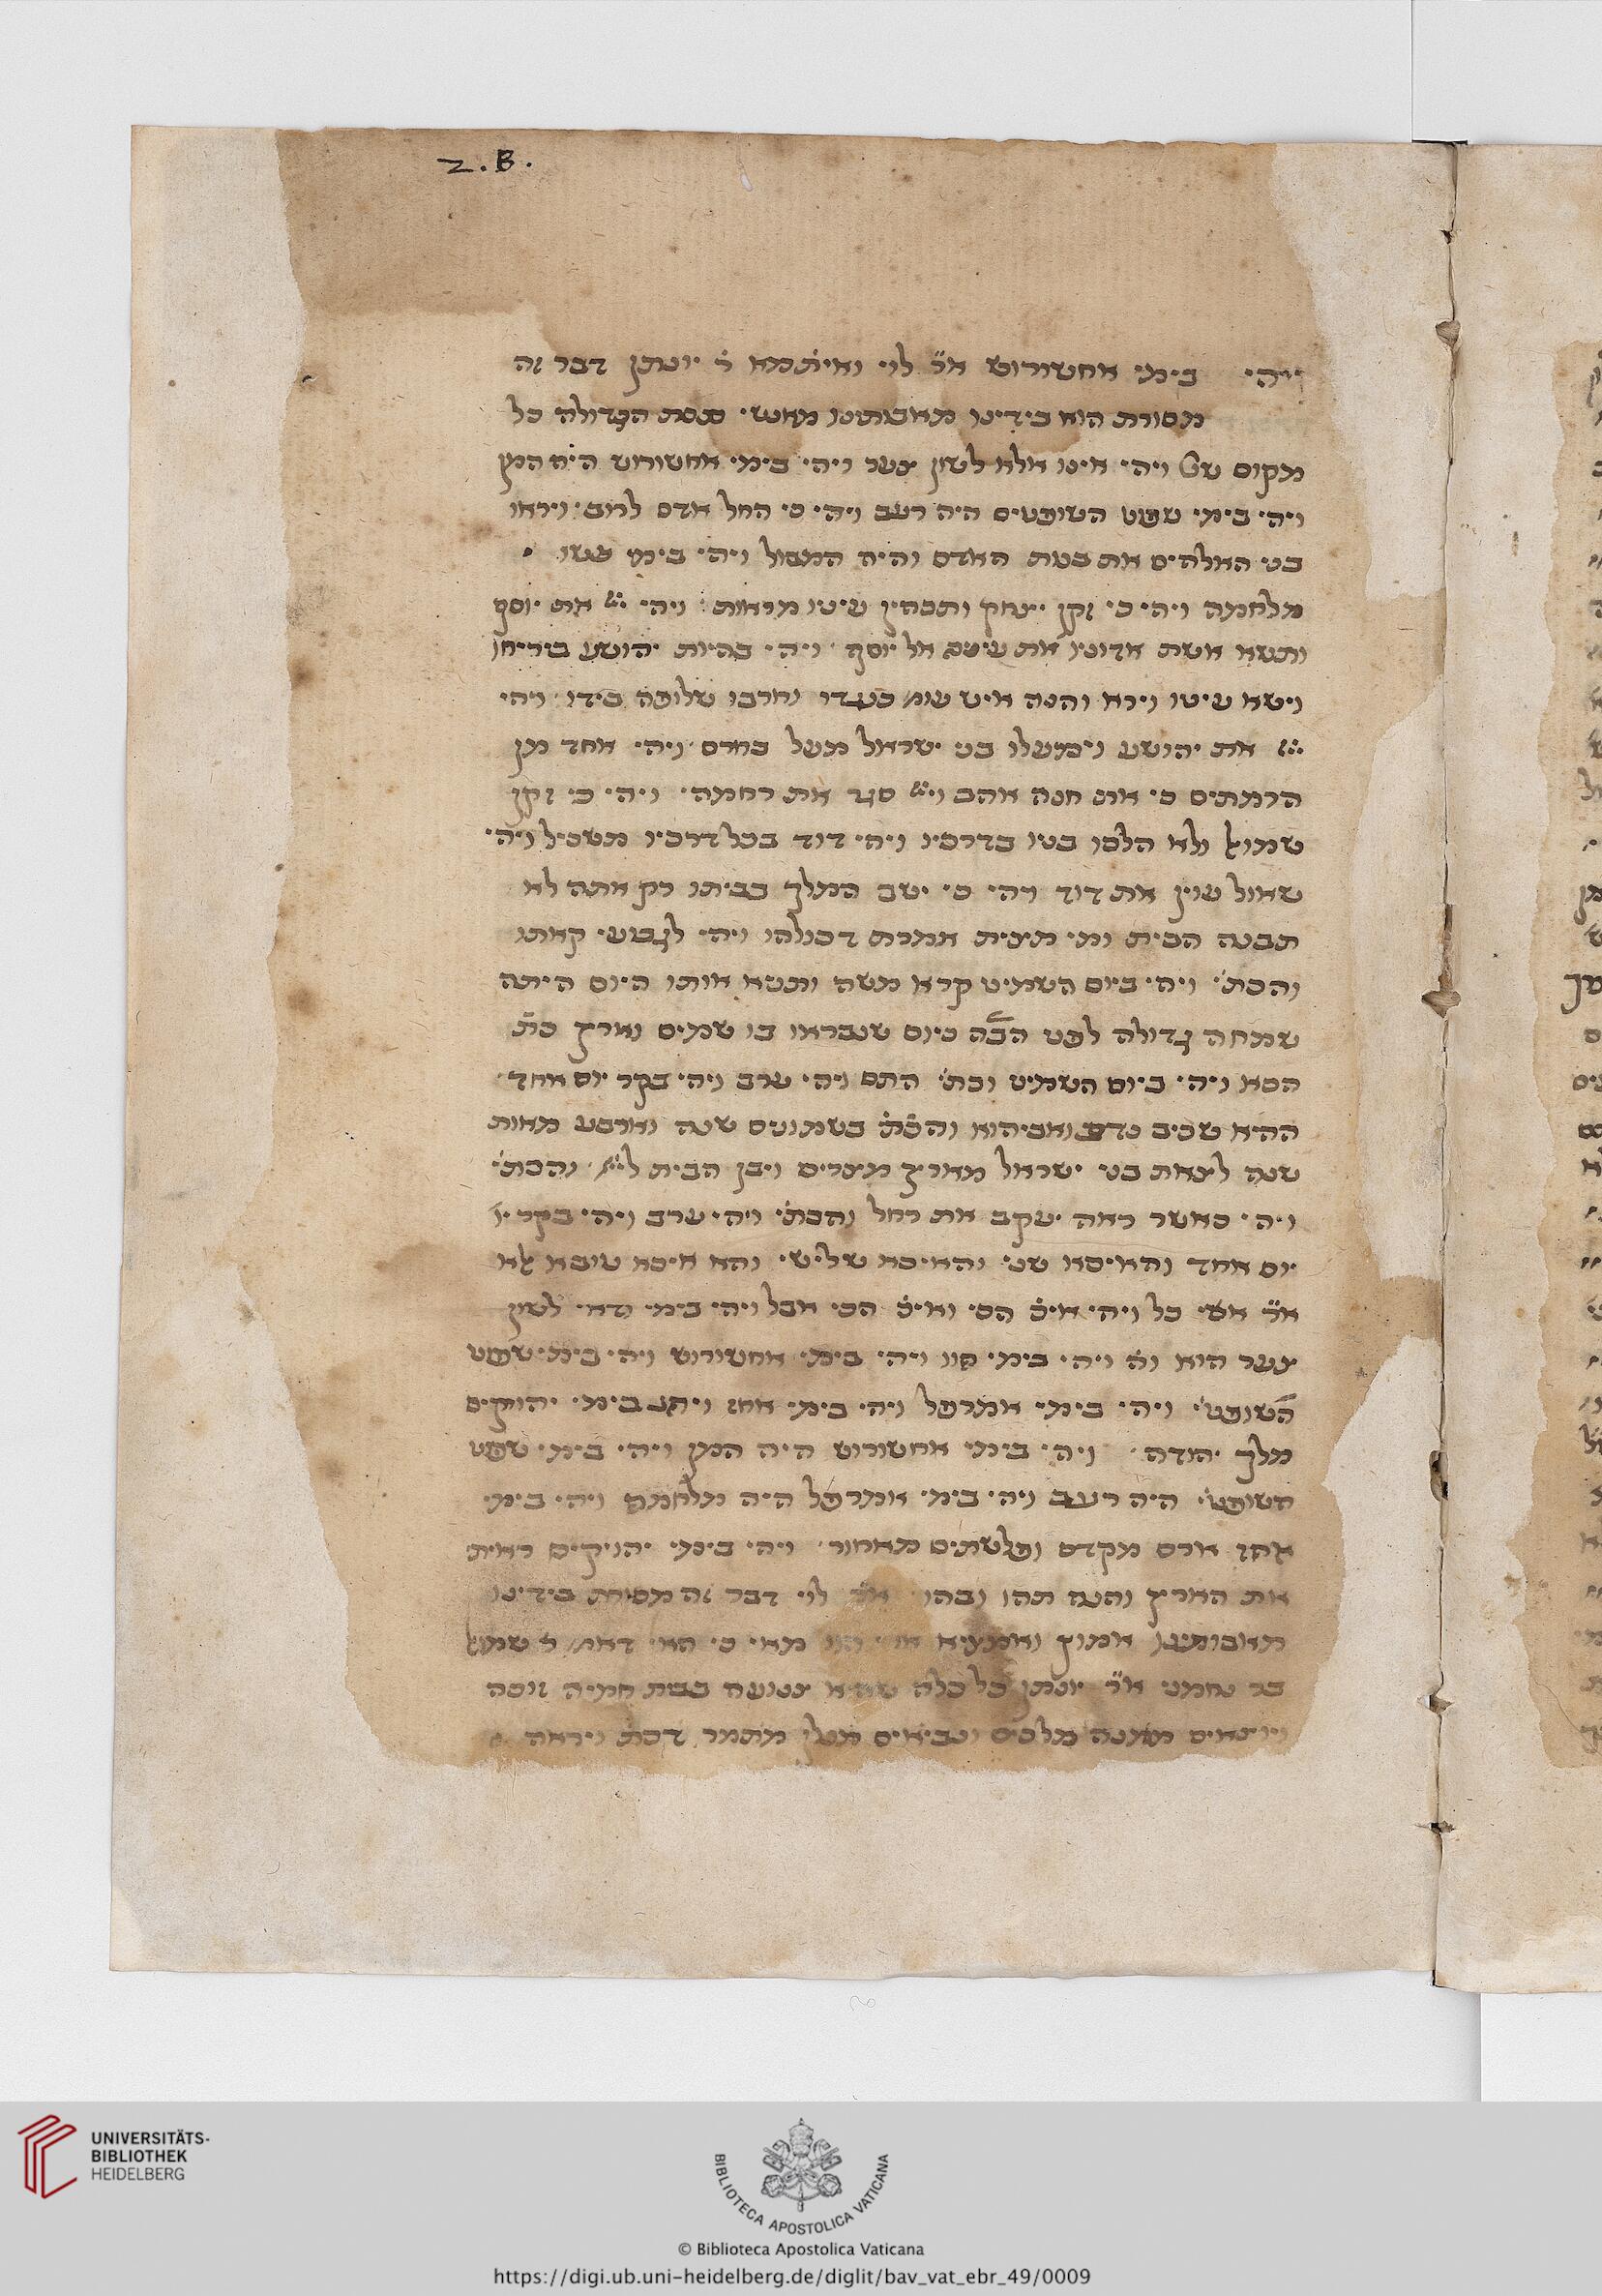 z. B.
ויהי בימי אחשורוש א״ר לוי ואיתמא ר׳ יונתן דבר זה
מסורת הוא בידינו מאבותינו מאנשי כנסת הגדולה כל
מקום שנ׳ ויהי אינו אלא לשון צער ויהי בימי אחשורוש היה המן
ויהי בימי שפוט השופטים היה רעב ויהי כי החל אדם לרוב ויראו
בני האלהים את בנות האדם והיה המבול ויהי בימי
מלחמה ויהי כי זקן יצחק ותכהין עיניו מראות ויהי את יוסף
ותשא אשת אדוניו את עיניה אל יוסף ויהי בהיות יהושע ביריחו
וישא עיניו וירא והנה איש עומ׳ כנגדו וחרבו שלופה בידו ויהי
את יהושע וימעלו בני ישראל מעל בחרם ויהי אחד מן
הרמתים כי את חנה אהב וי׳ סגר את רחמה ויהי כי זקן
שמואל ולא הלכו בניו בדרכיו ויהי דוד בכל דרכיו משכיל ויהי
שאול עוין את דוד ויהי כי ישב המלך בביתו רק אתה לא
תבנה הבית ומי תיצית אמרת דכולהו ויהי לצבועי קאתו
והכת׳ ויהי ביום השמיני קרא משה ותנא אותו היום היתה
שמחה גדולה לפני הב״ה כיום שנבראו בו שמים וארץ כת׳
הכא ויהי ביום השמיני וכת׳ התם ויהי ערב ויהי בקר יום אחד
ההיא שכיב נדב ואביהוא והכת׳ בשמונים שנה וארבע מאות
שנה לצאת בני ישראל מארץ מצרים ויבן הבית לי׳ והכת׳
ויהי כאשר ראה יעקב את רחל והכת׳ ויהי ערב ויהי בקר
יום אחד והאיכא שני והאיכא שלישי והא איכא טובא לא
א״ר אשי כל ויהי אי׳ הכי ואי׳ הכי אבל ויהי בימי ודאי לשון
צער הוא וה׳ ויהי בימי הוו ויהי בימי אחשורוש ויהי בימי שפוט
השופטי׳ ויהי בימי אמרפל ויהי בימי אחז ויהי בימי יהויקים
מלך יהודה ויהי בימי אחשורוש היה המן ויהי בימי שפוט
השופטי׳ היה רעב ויהי בימי אמרפל היה מלחמה ויהי בימי
אחז ארם מקדם ופלשתים מאחור ויהי בימי יהויקים ראיתי
את הארץ והנה תהו ובהו א״ר לוי דבר זה מסורת בידינו
מאבותינו אמוץ ואמציא אחי הוו מאי כי הא דאמ׳ ר׳ שמואל
בר נחמני א״ר יונתן כל כלה שהיא צנועה בבית חמיה זוכה
ויוצאים ממנה מלכים ונביאים מתמר דכת׳ ויראה
UNIVERSITÄTS-
BIBLIOTHEK
HEIDELBERG
BIBLIOTECA APOSTOLICA VATICANA
© Biblioteca Apostolica Vaticana
https://digi.ub.uni-heidelberg.de/diglit/bav_vat_ebr_49/0009